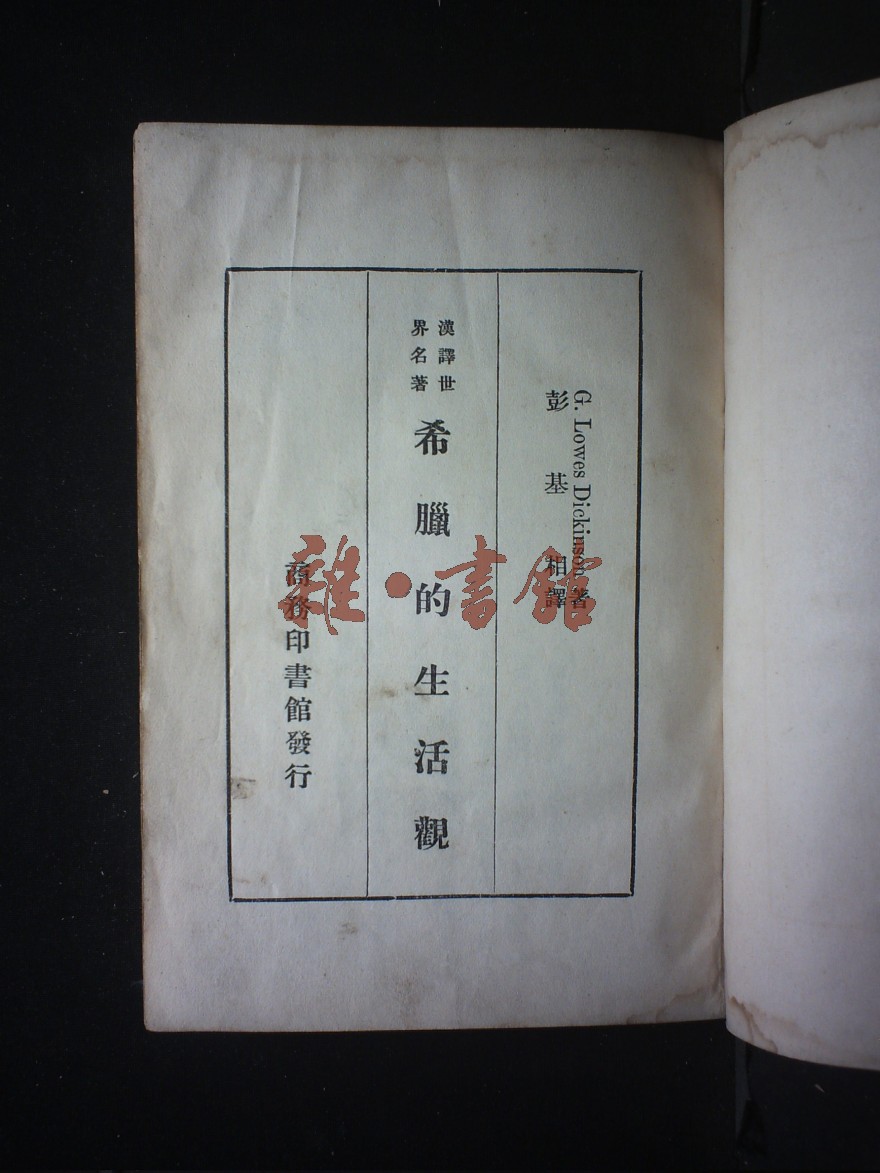 G. Lowes Dickinson著
彭基相譯
漢譯世
界名著
希臘的生活觀
商務印書館發行
雜·書館